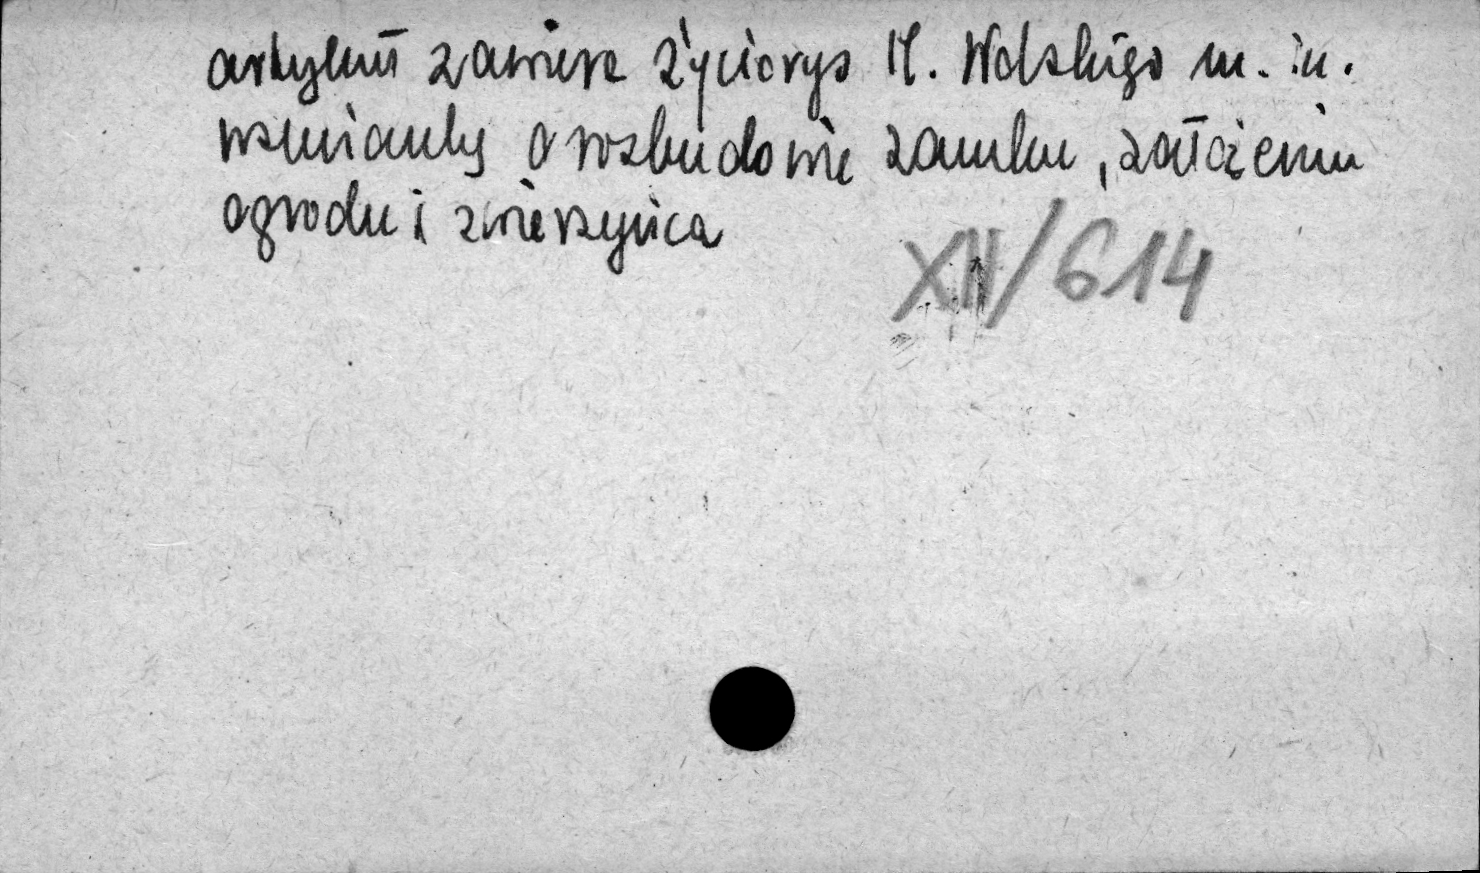 artykuł zawiera życiorys M. Wolskiego m. in.
wzmianky o rozbudowie zamku, założeniu
ogrodu i zwierzyńca
XII/614